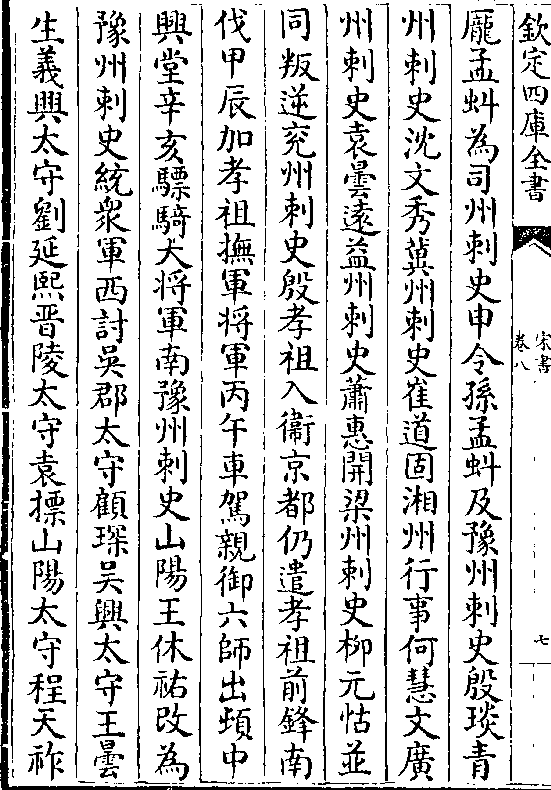 欽定四庫全書
宋書
卷八
七
龐孟虯為司州刺史申令孫孟虯及豫州刺史殷琰青
州刺史沈文秀冀州刺史崔道固湘州行事何慧文廣
州刺史袁曇遠益州刺史蕭惠開梁州刺史柳元怙並
同叛逆兖州刺史殷孝祖入衞京都仍遣孝祖前鋒南
伐甲辰加孝祖撫軍將軍丙午車駕親御六師出頓中
興堂辛亥驃騎大將軍南豫州刺史山陽王休祐改為
豫州刺史統衆軍西討吳郡太守顧琛吳興太守王曇
生義興太守劉延熙晋陵太守袁摽山陽太守程天祚